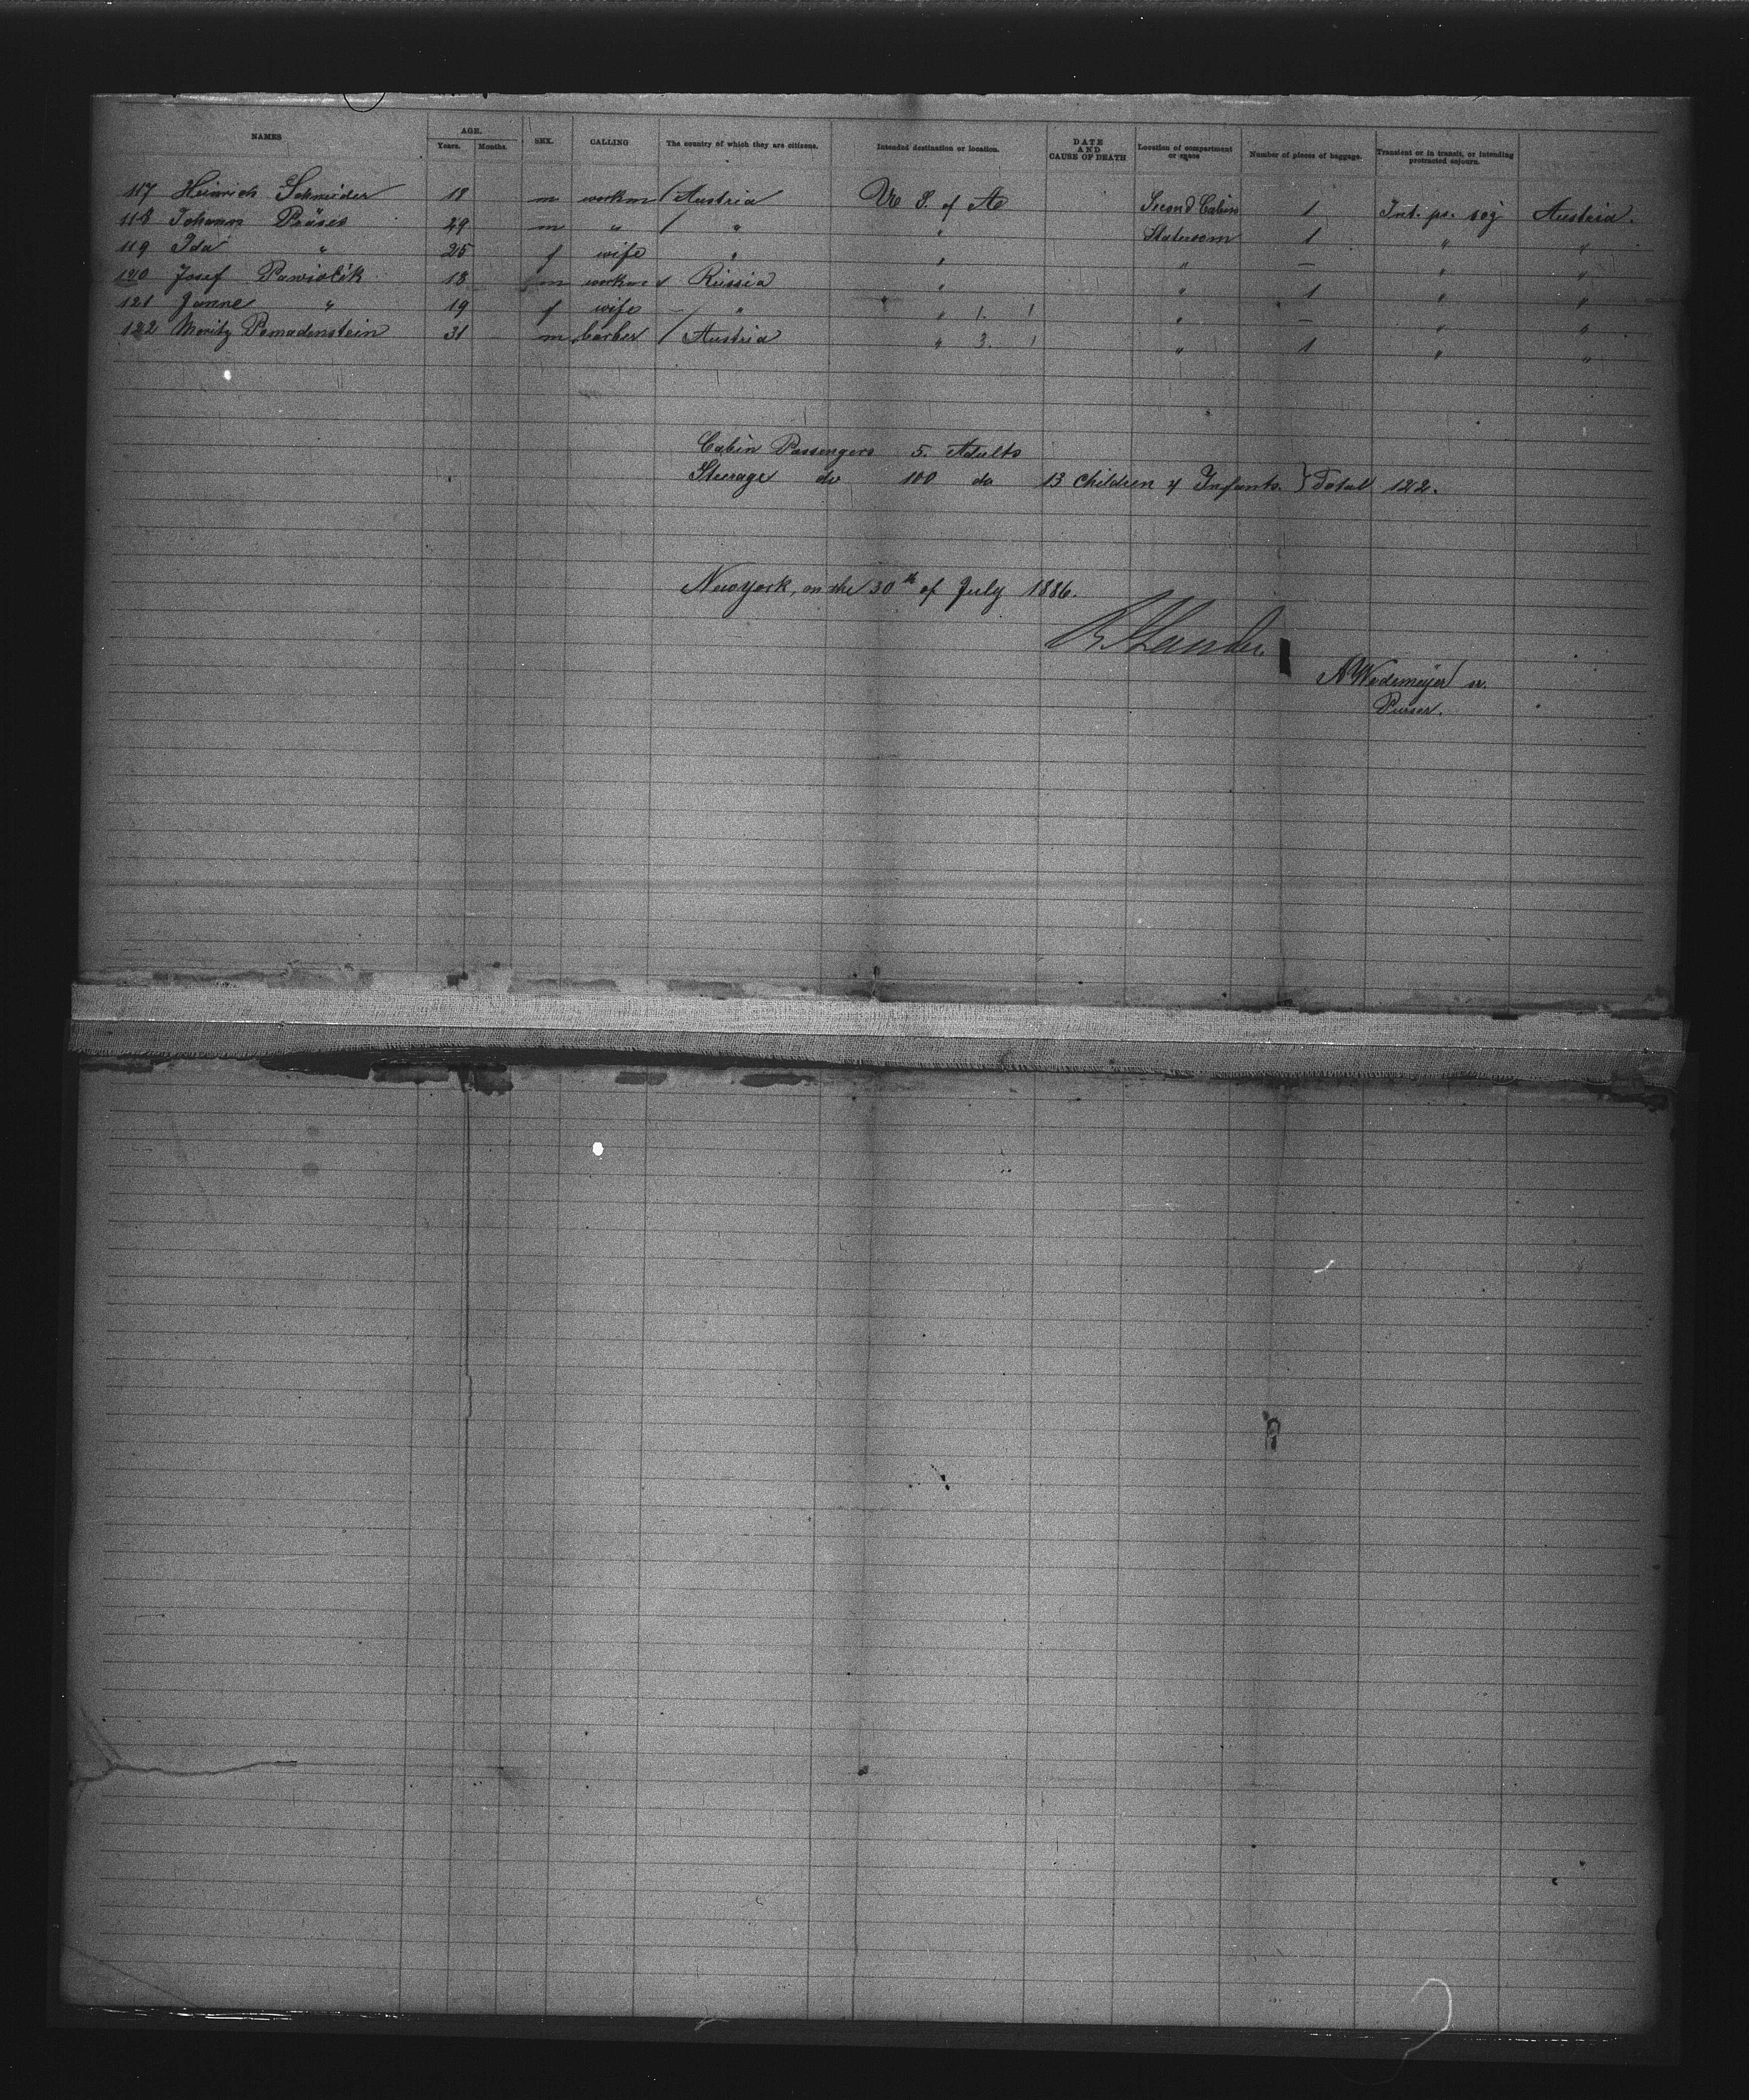 NAMES AGE. SEX. CALLING The country of which they are citizens. Intended destination or location. DATE AND CAUSE OF DEATH Location of compartment or space Number of pieces of baggage. Transient or in transit, or intending protracted sojourn.
Years. Months.
117 Heinrich Schneider 18 m workm / Austria U. S. of A Second Cabin 1 Int. pr. soj Austria.
118 Johann 29 m " / " " Stateroom 1 " "
119 Ida " 25 f wife " " " — " "
120 Josef 18 m workm Russia " " 1 " "
121 " 19 f wife — " " 1. 1 " — " "
122 Moritz 31 m barber / Austria " 3. 1 " 1 " "
Cabin Passengers 5. Adults
Steerage do 100 do 13 Children 4 Infants. } Total 122.
New York, on the 30th of July 1886.
Purser.